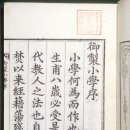 御製小學序
小學何爲而作也
生甫八歲必受是
代教人之法也自
焚以來經籍蕩殘